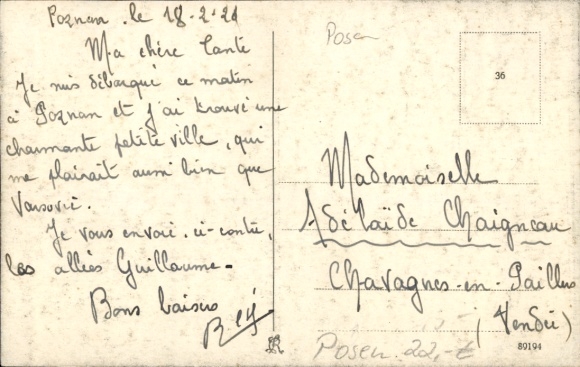 Poznan. le 18-2-21
Ma chère Tante
Je suis débarqué ce matin
à Poznan et j'ai trouvé une
charmante petite ville, qui
me plairait aussi bien que
Varsovie.
Je vous envoie ci-contre,
les allées Guillaume.
Bons baisers
Posen
36
Mademoiselle
Adélaïde Chaigneau
Chavagnes-en-Paillers
(Vendée)
Posen 22,-€
89194